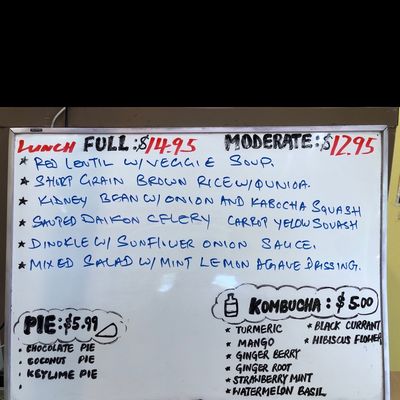 LUNCH FULL:$14.95 MODERATE:$12.95
* RED LENTIL W/VEGGIE SOUP.
* SHORT GRAIN BROWN RICE W/QUNIOA.
* KIDNEY BEAN W/ONION AND KABOCHA SQUASH
* SAUTED DAIKON CELERY CARROT YELOW SQUASH
* DINOKLE W/ SUNFLIWER ONION SAUCE.
* MIXED SALAD W/ MINT LEMON AGAVE DRISSING.
PIE:$5.99
• CHOCOLATE PIE
• COCONUT PIE
• KEYLIME PIE
KOMBUCHA: $5.00
* TURMERIC
* MANGO
* GINGER BERRY
* GINGER ROOT
* STRAWBERRY MINT
* WATERMELON BASIL
* BLACK CURRANT
* HIBISCUS FLOWER